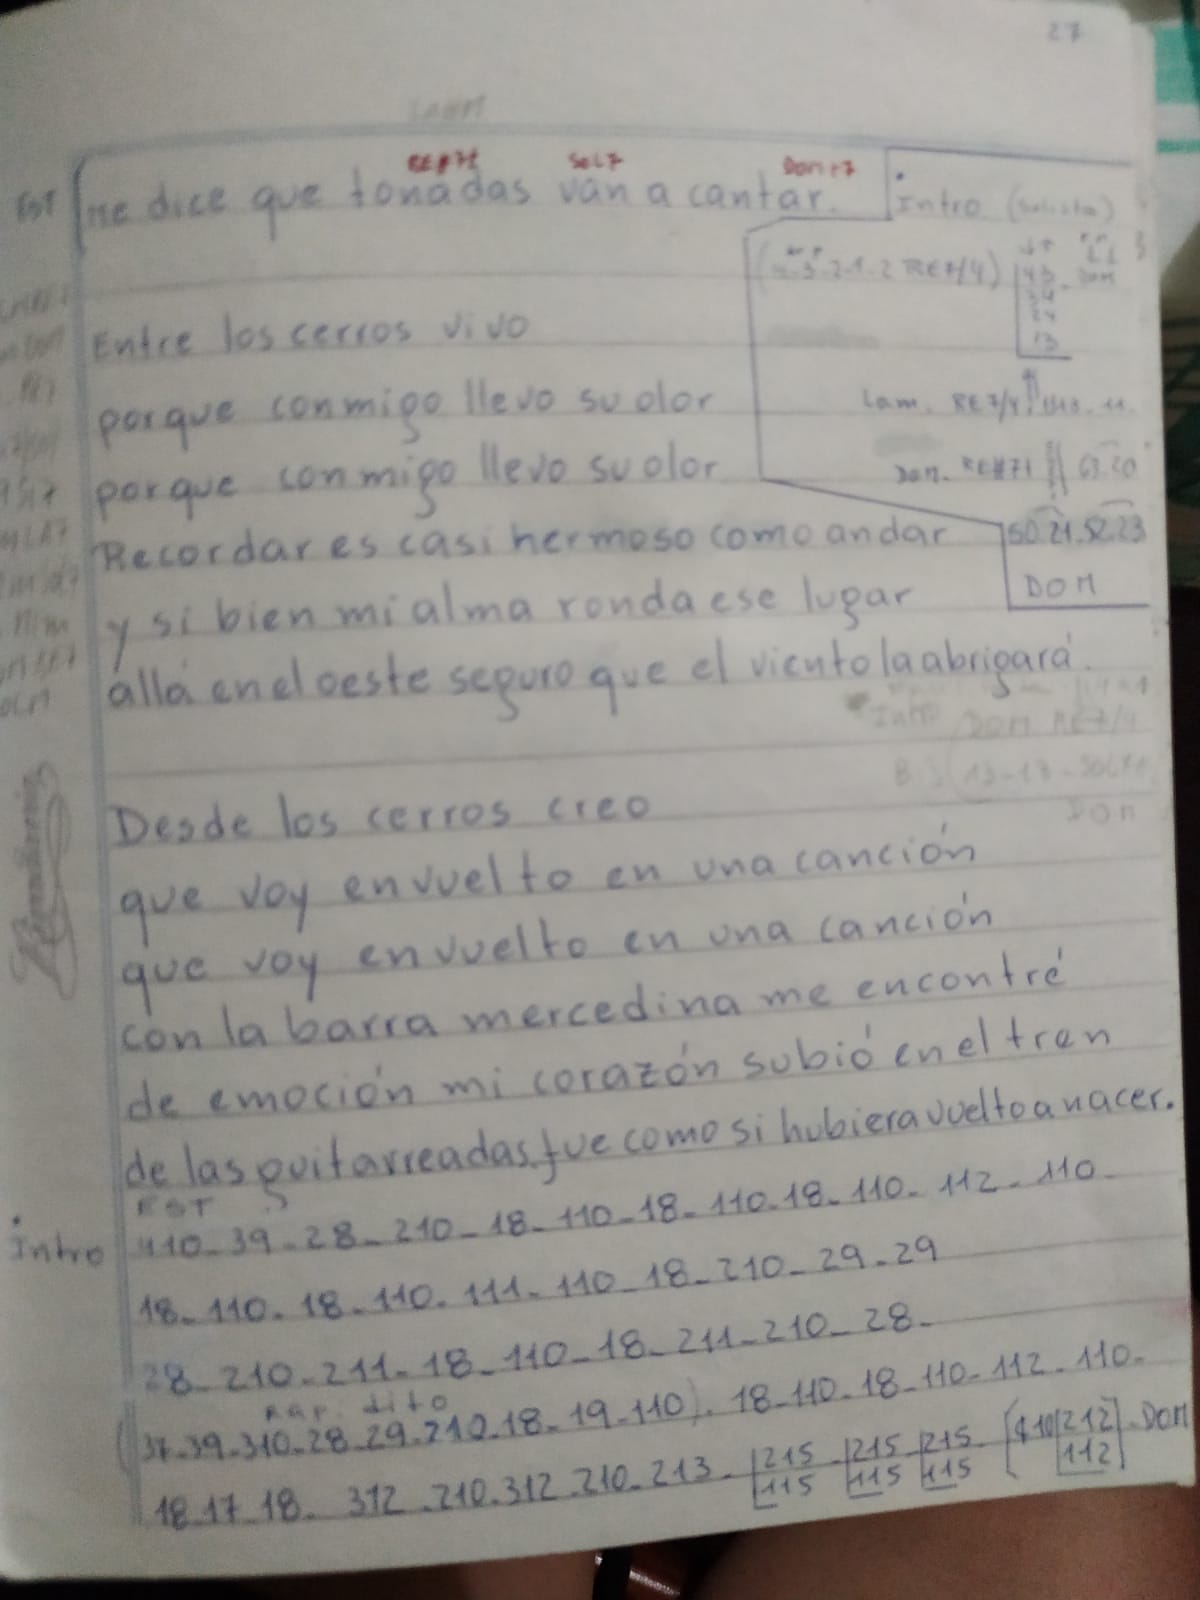 27
RE#7 SOL7 Dom+7
EST me dice que tonadas van a cantar.
Intro (solista)
4-3-2-1-2 RE7/4)
13
Lam. RE7/4
Dom. 63.60
50.21.52.23
DOM
Entre los cerros vivo
porque conmigo llevo su olor
porque conmigo llevo su olor
Recordar es casi hermoso como andar
y si bien mi alma ronda ese lugar
allá en el oeste seguro que el viento la abrigará.
Intro DOM RE7/4
13-13-
DOM
Desde los cerros creo
que voy envuelto en una canción
que voy envuelto en una canción
con la barra mercedina me encontré
de emoción mi corazón subió en el tren
de las guitarreadas, fue como si hubiera vuelto a nacer.
EST
Intro 410-39-28-210-18-110-18-110-18-110-112-110-
18-110-18-110-111-110-18-210-29-29
28-210-211-18-110-18-211-210-28-
rap. dito
(37-39-310-28-29-210-18-19-110). 18-110-18-110-112-110-
18-17-18- 312-210-312-210-213- 215-215-215- [410 212] - DOM
115 115 115 112